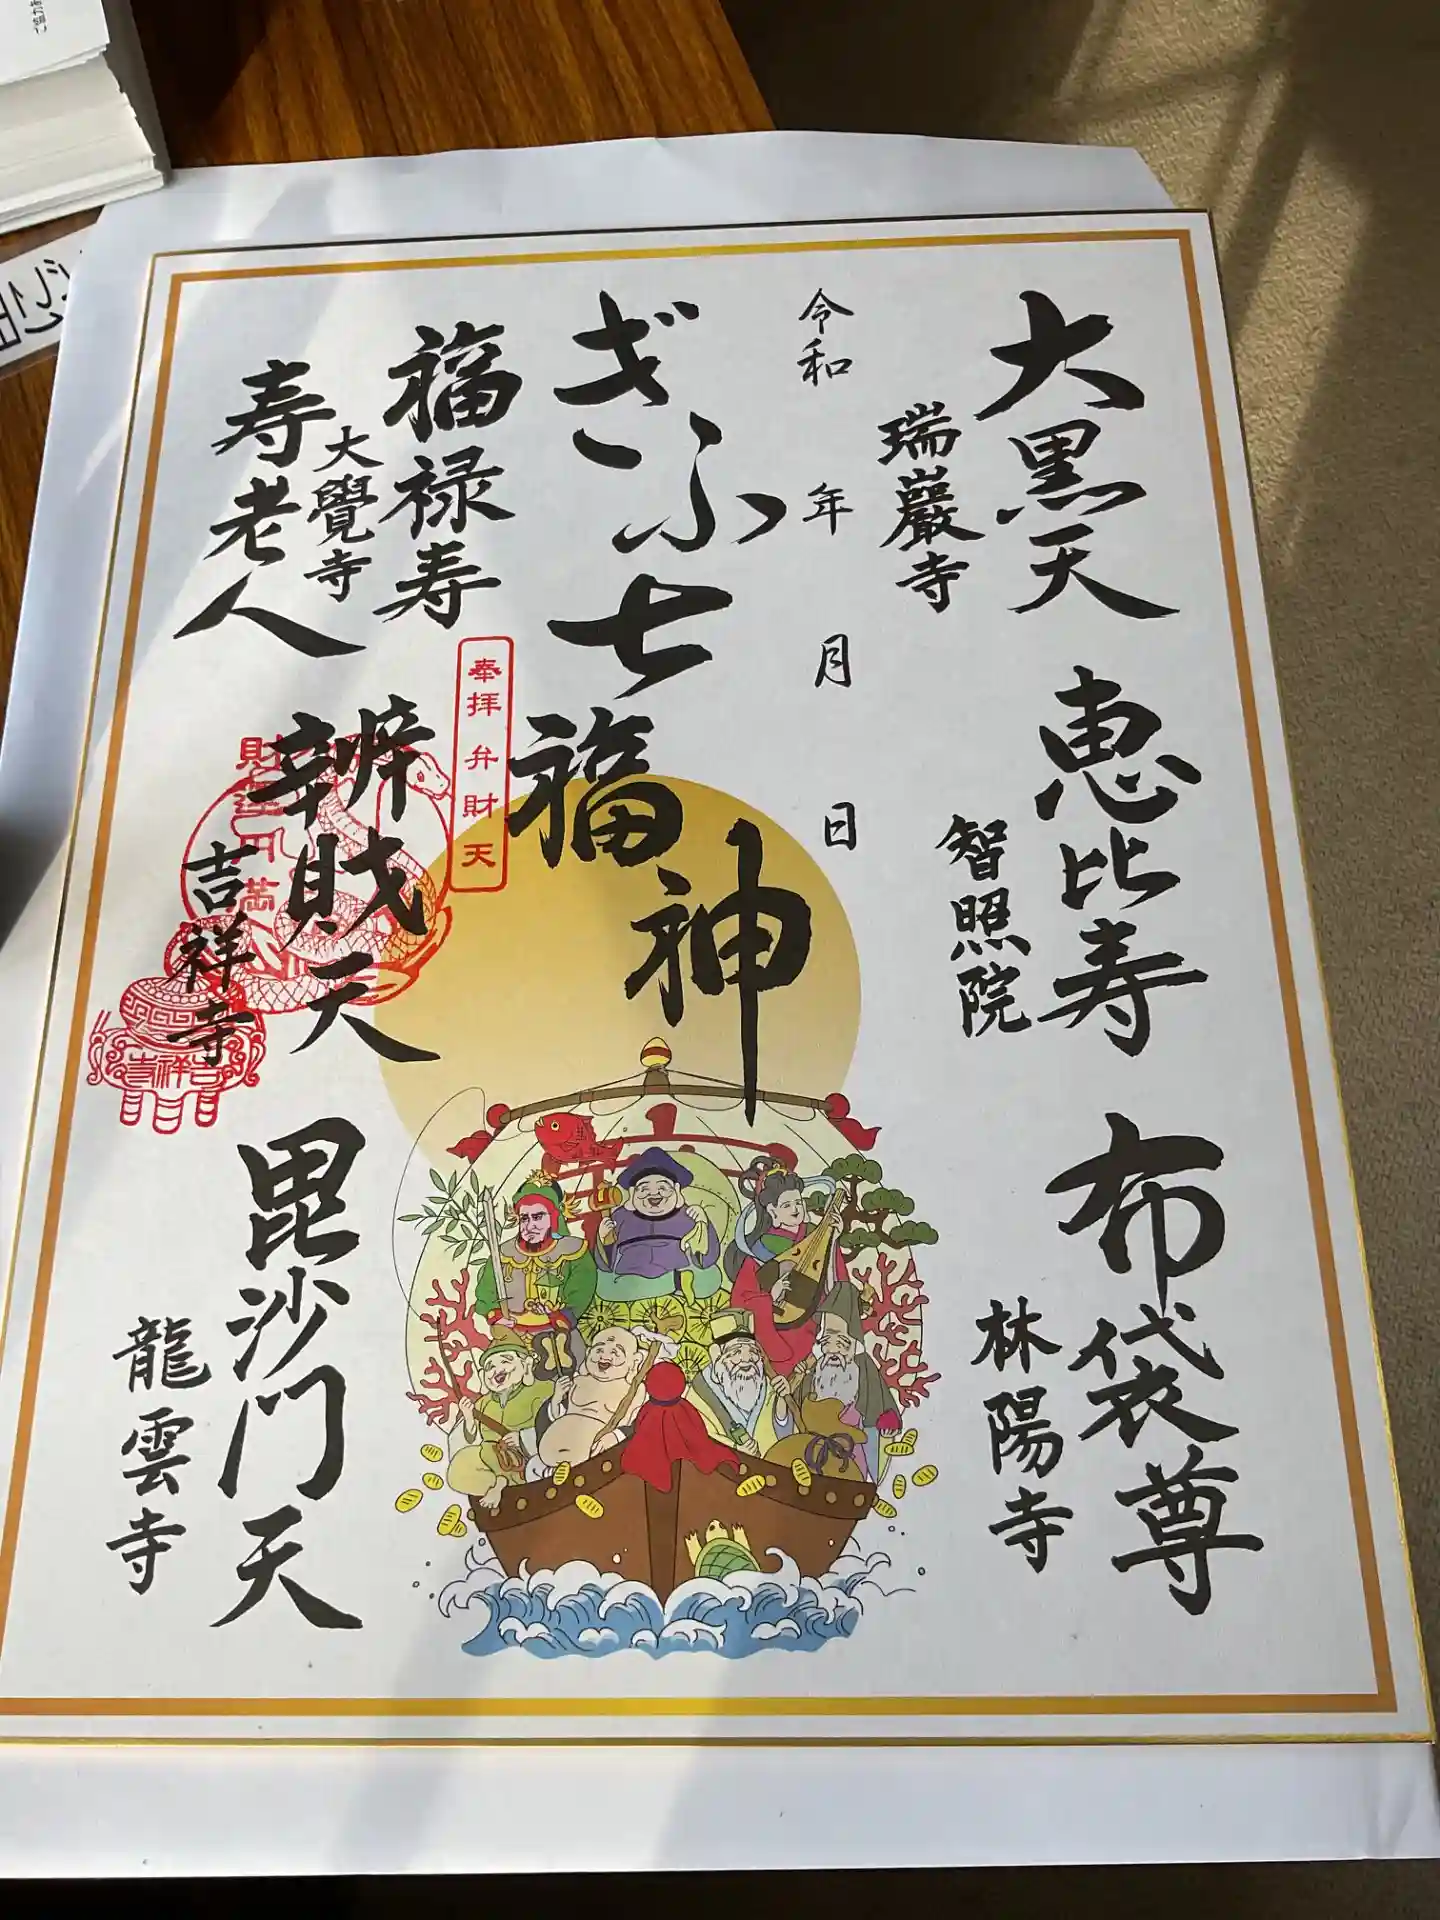 大黒天
瑞巖寺
恵比寿
智照院
布袋尊
林陽寺
令和 年 月 日
ぎふ七福神
福禄寿
大覺寺
寿老人
奉拝 弁財天
辨財天
吉祥寺
吉祥寺
毘沙門天
龍雲寺